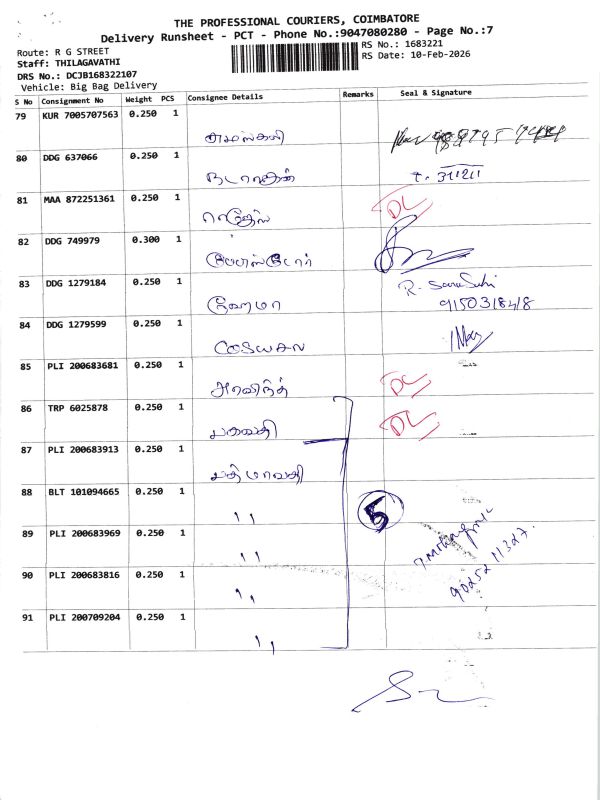 THE PROFESSIONAL COURIERS, COIMBATORE
Delivery Runsheet - PCT - Phone No.:9047080280 - Page No.:7
Route: R G STREET
RS No.: 1683221
Staff: THILAGAVATHI
RS Date: 10-Feb-2026
DRS No.: DCJB168322107
Vehicle: Big Bag Delivery
S No Consignment No Weight PCS Consignee Details Remarks Seal & Signature
79 KUR 7005707563 0.250 1
80 DDG 637066 0.250 1
நடராஜன்
81 MAA 872251361 0.250 1 DL
ராஜேஸ்
82 DDG 749979 0.300 1
83 DDG 1279184 0.250 1 R.
ஹேமா 9150318418
84 DDG 1279599 0.250 1
85 PLI 200683681 0.250 1
அரவிந்த் DL
86 TRP 6025878 0.250 1 DL
பகவதி
87 PLI 200683913 0.250 1
பத்மாவதி
88 BLT 101094665 0.250 1
" 5
89 PLI 200683969 0.250 1
" 90252 11327.
90 PLI 200683816 0.250 1
"
91 PLI 200709204 0.250 1
"